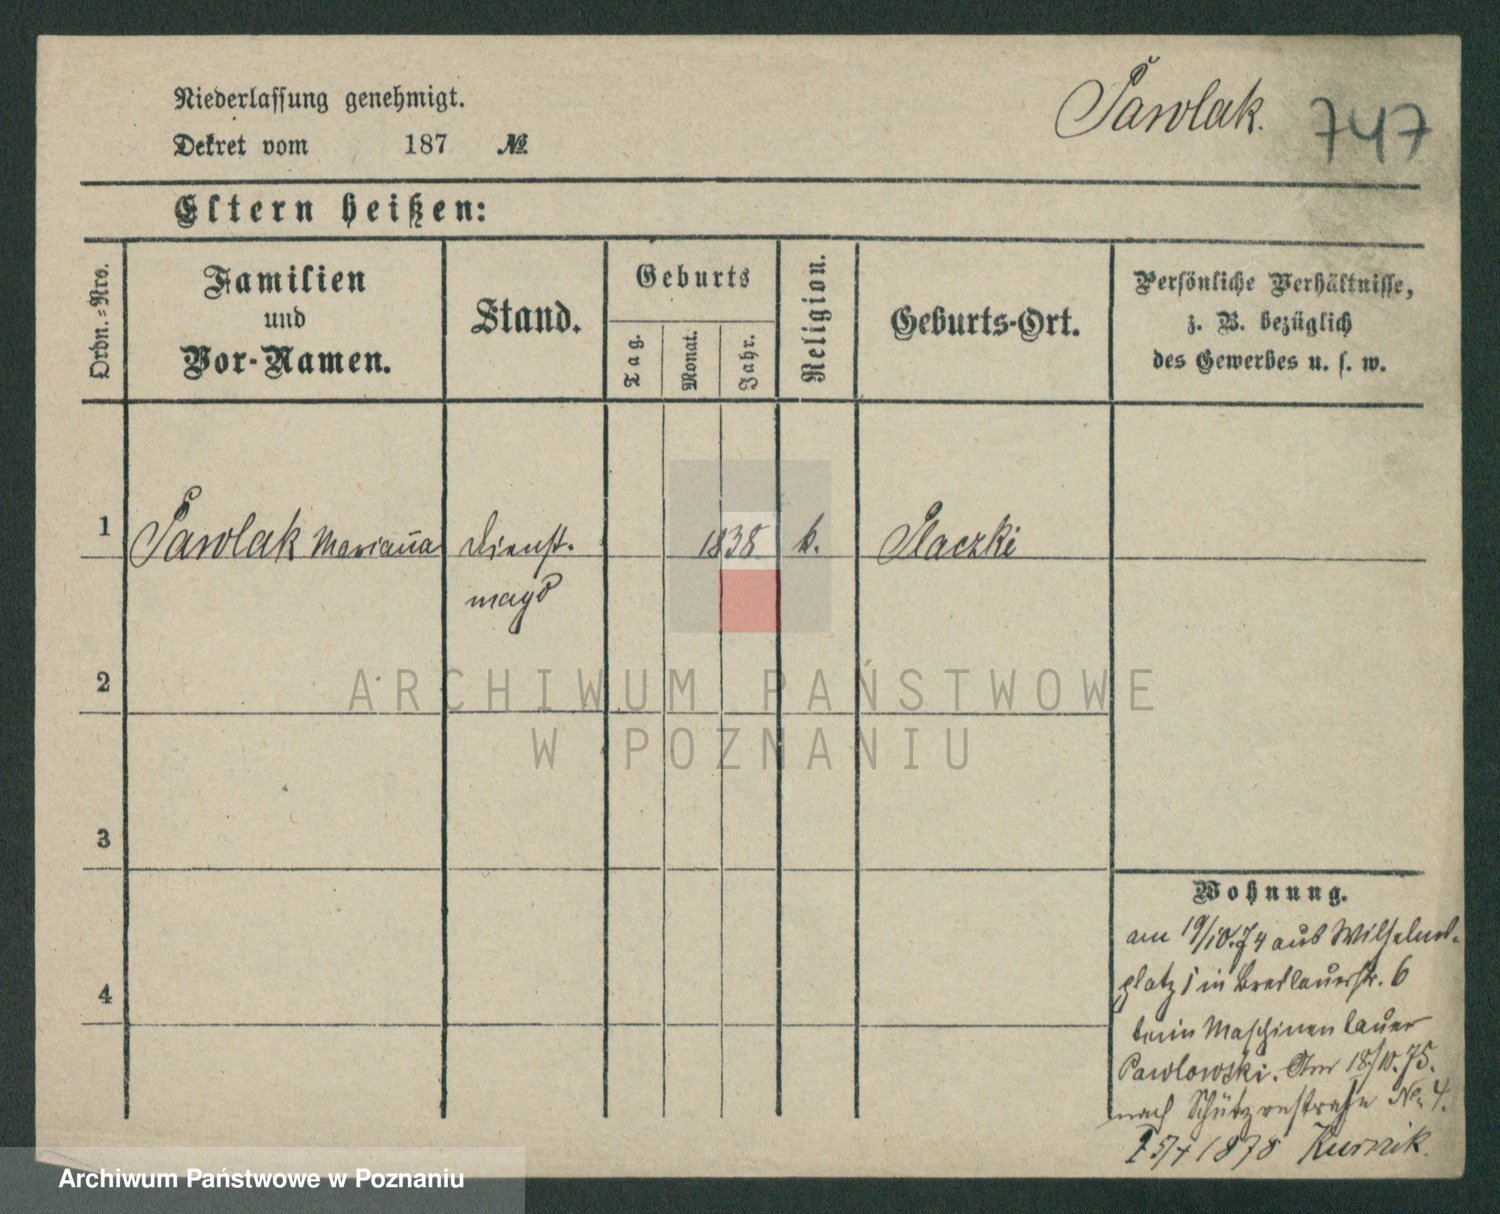 Niederlassung genehmigt.
Dekret vom 187 №
Pawlak. 747
Eltern heißen:
Ordn.-Nro.
Familien
und
Vor-Namen.
Stand.
Geburts
Tag.
Monat.
Jahr.
Religion.
Geburts-Ort.
Persönliche Verhältnisse,
z. B. bezüglich
des Gewerbes u. s. w.
1 Pawlak Marianna Dienst- 1838 k. Placzki
magd
2
3
4
Wohnung.
am 19/10.74 aus Wilhelms-
platz 1 in Breslauerstr. 6
beim Maschinenbauer
Pawlowski. Am 18/10.75.
nach Schützenstraße No. 4.
1878 Kurnik.
ARCHIWUM PAŃSTWOWE
W POZNANIU
Archiwum Państwowe w Poznaniu